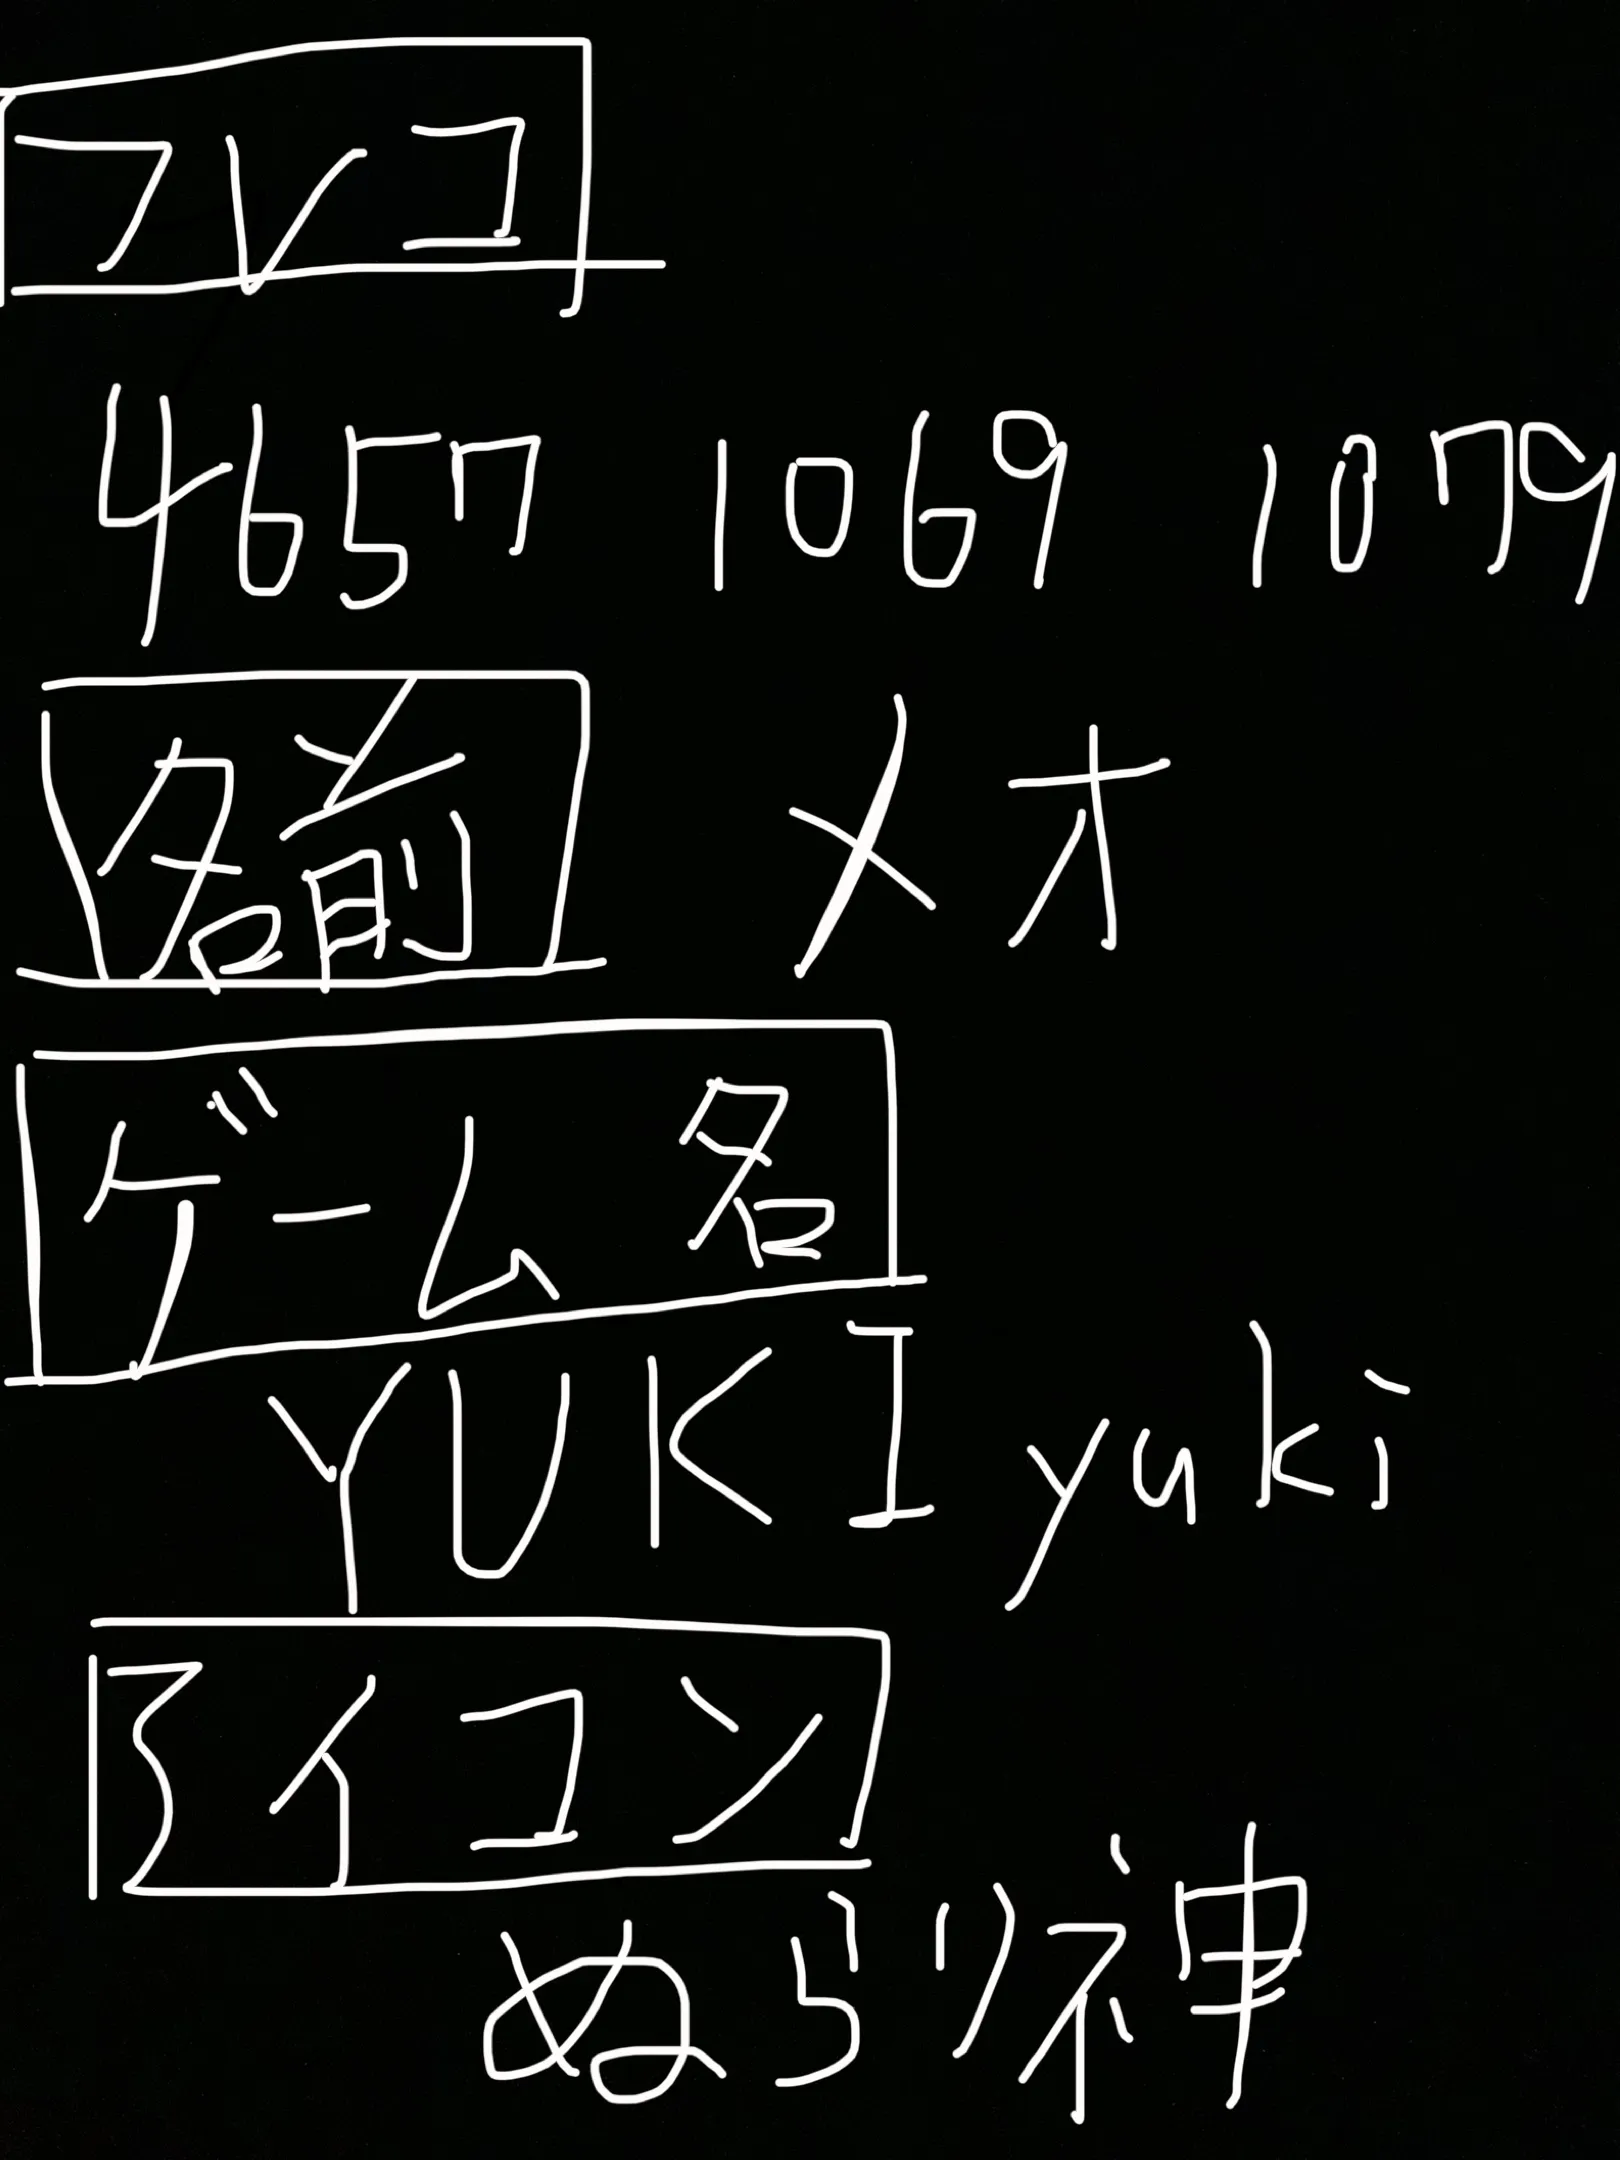 フレコ
4657 1069 1079
名前 メオ
ゲーム名
YUKI yuki
アイコン
ぬらり神